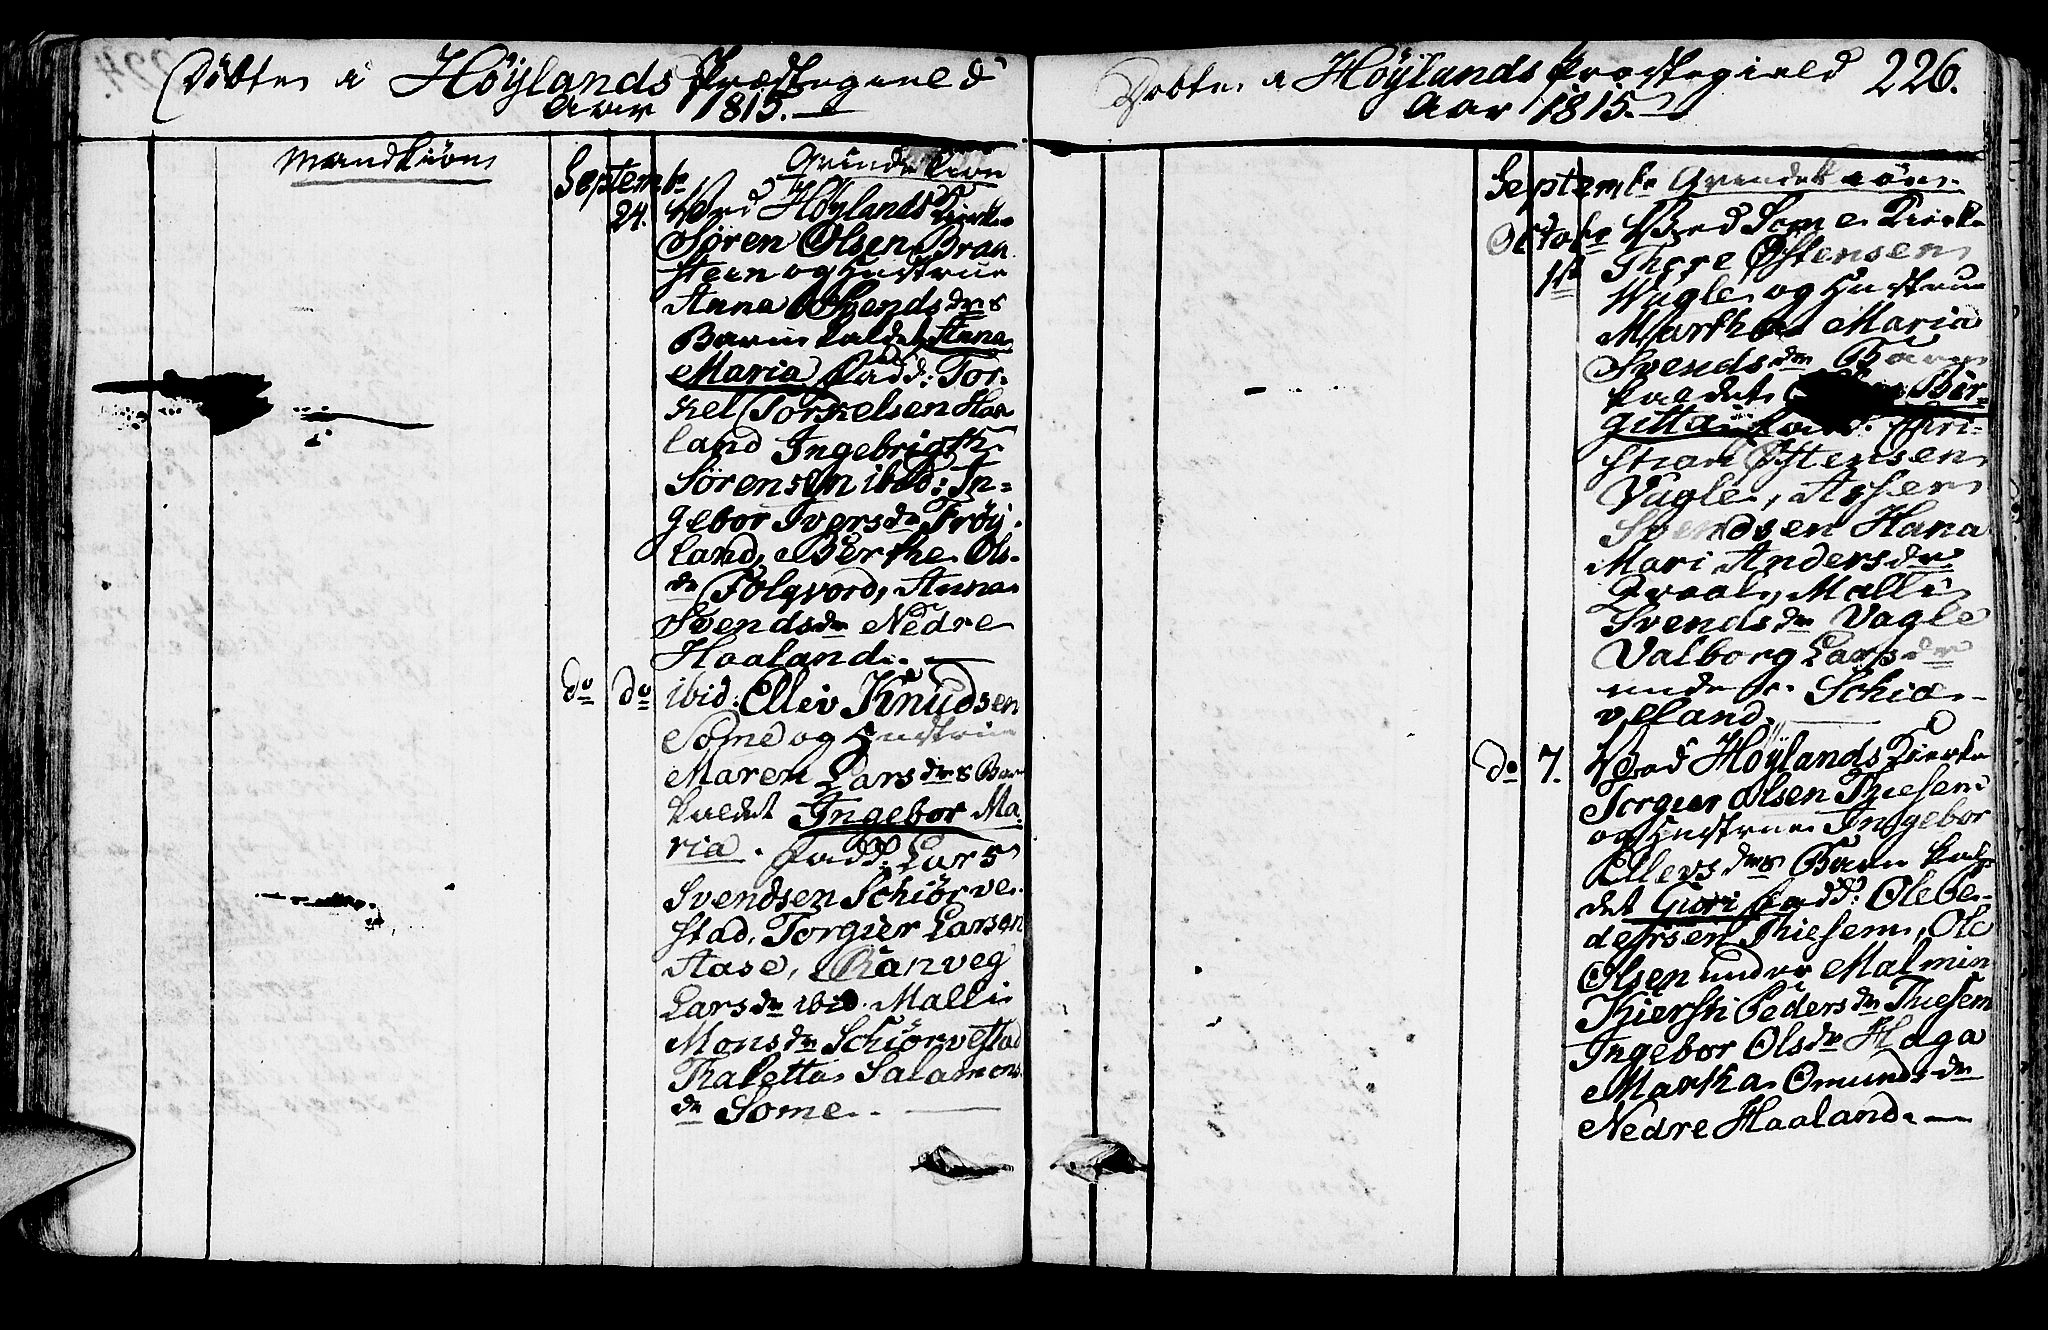 Döbte i Høylands Præstegield
Aar 1815.
Mandkiøn
Septembr
24.
Qvindekiøn
Ved Høylands Kirke
Søren Olsen Bran
steen og Hustrue
Anna Svends drs
Barn kaldet Anna
Maria Fadd: Tor-
kel Torkelsen Haa
land Ingebrigth
Sørensen ibid: In=
gebor Ivers dr Frøy-
land, Berthe Ols-
dr Folqvord, Anna
Svends dr Nedre
Haaland. —
do do
ibid: Ellev Knudsen
Some og Hustrue
Maren Lars drs Bar
kaldet Ingebor Ma-
ria. Fadd: Lars
Svendsen Schiørve-
stad, Torgier Larsen
Aase, Ranveg
Lars dr ibid. Malli
Mons dr Schiørvestad
Thaletta Salamons
dr Some. —
Döbte i Høylands Præstegield 226.
Aar 1815.
Septembr Qvindekiøn
Octobr
1st
Ved Some Kirke
Thore Østensen
Wagle og Hustrue
Martha Maria
Svends dr Barn
kaldet Bir=
gitta Fadd: Chri=
stian Østensen
Vagle, Asser
Svendsen Hana
Mari Anders dr
Malli
Svends dr Vagle
Valborg Lars dr
under Schiæ-
veland. —
do 7.
Ved Høylands Kierke
Torgier Olsen Thiesem
og Hustrue Ingebor
Ellevs drs Barn kal-
det Guri Fadd: Ole Pe-
dersen Thiesem, Ole
Olsen under Malmin
Kiersti Peders dr Thiesem
Ingebor Ols dr Haga
Martha Omunds dr
Nedre Haaland. —